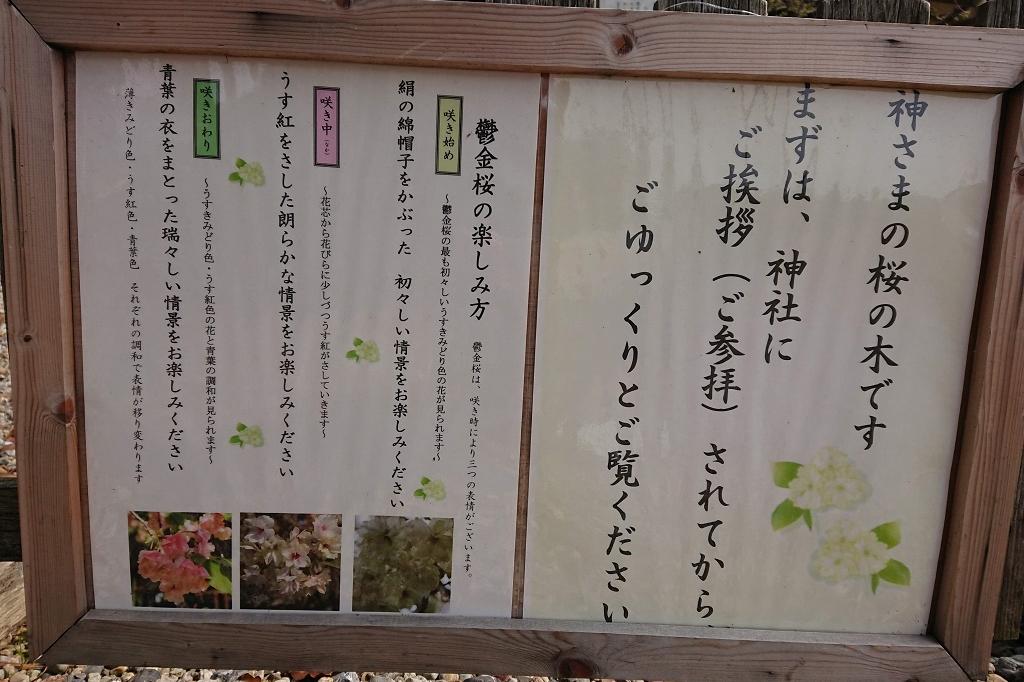 神さまの桜の木です
まずは、神社に
ご挨拶（ご参拝）されてから
ごゆっくりとご覧ください
鬱金桜の楽しみ方　鬱金桜は、咲き時により三つの表情がございます。
咲き始め　～鬱金桜の最も初々しいうすきみどり色の花が見られます～
絹の綿帽子をかぶった　初々しい情景をお楽しみください
咲き中（なか）　～花芯から花びらに少しづつうす紅がさしていきます～
うす紅をさした朗らかな情景をお楽しみください
咲きおわり　～うすきみどり色・うす紅色の花と青葉の調和が見られます～
青葉の衣をまとった瑞々しい情景をお楽しみください
薄きみどり色・うす紅色・青葉色　それぞれの調和で表情が移り変わります